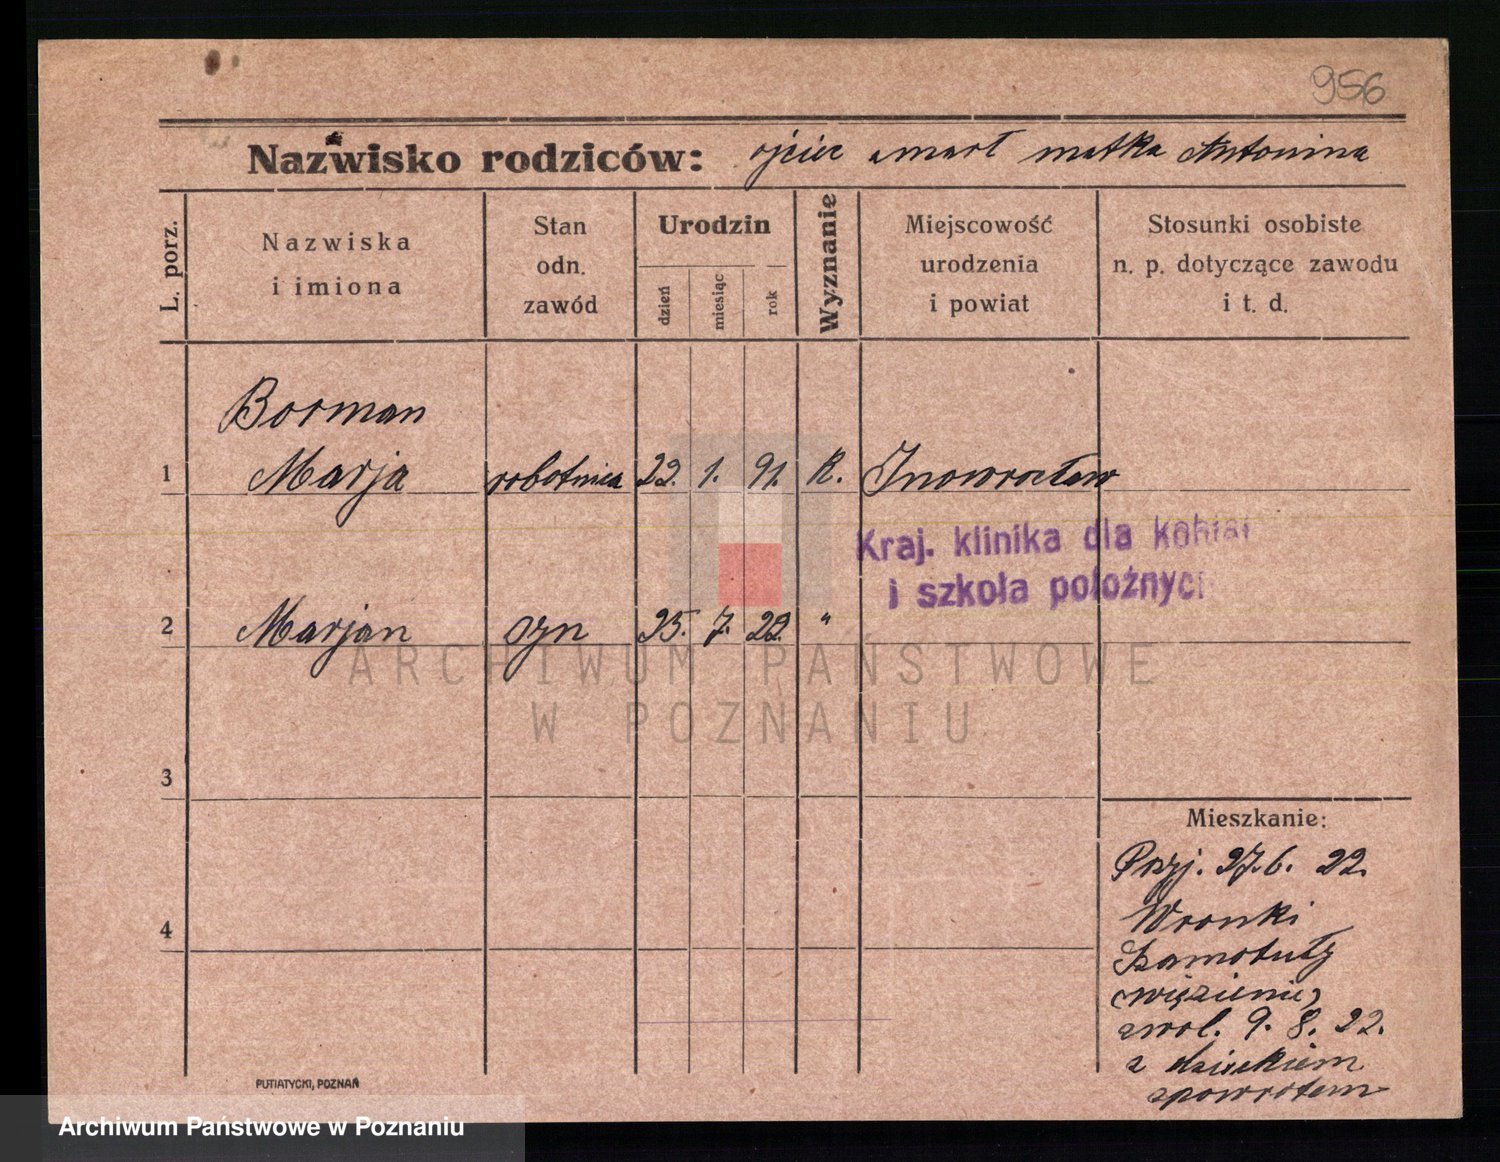 956
Nazwisko rodziców: ojciec umarł matka Antonina
L. porz.
Nazwiska
i imiona
Stan
odn.
zawód
Urodzin
dzień
miesiąc
rok
Wyznanie
Miejscowość
urodzenia
i powiat
Stosunki osobiste
n. p. dotyczące zawodu
i t. d.
Borman
1 Marja robotnica 22. 1. 91. K. Inowrocław
Kraj. klinika dla kobiet
i szkoła położnych
2 Marjan syn 25. 7. 22. "
ARCHIWUM PAŃSTWOWE
W POZNANIU
3
Mieszkanie:
Przj. 27.6. 22.
4
Wronki
Szamotuły
(więzienie)
zwol. 9. 8. 22.
z dzieckiem
spowrotem
PUTIATYCKI, POZNAŃ
Archiwum Państwowe w Poznaniu